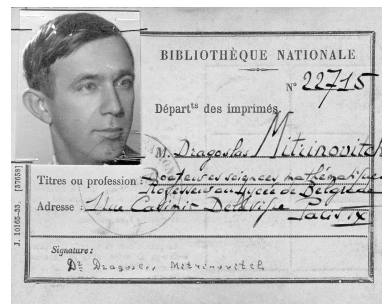 BIBLIOTHÈQUE NATIONALE
N° 22715
Départts des imprimés
M. Dragoslas Mitrinovitch
Titres ou profession: Docteur ès sciences mathématiques
Professeur au Lycée de Belgrade
Adresse: 1 Rue Casimir Delavigne Paris
Signature:
Dr Dragoslas Mitrinovitch
J. 10165-33. [37658]